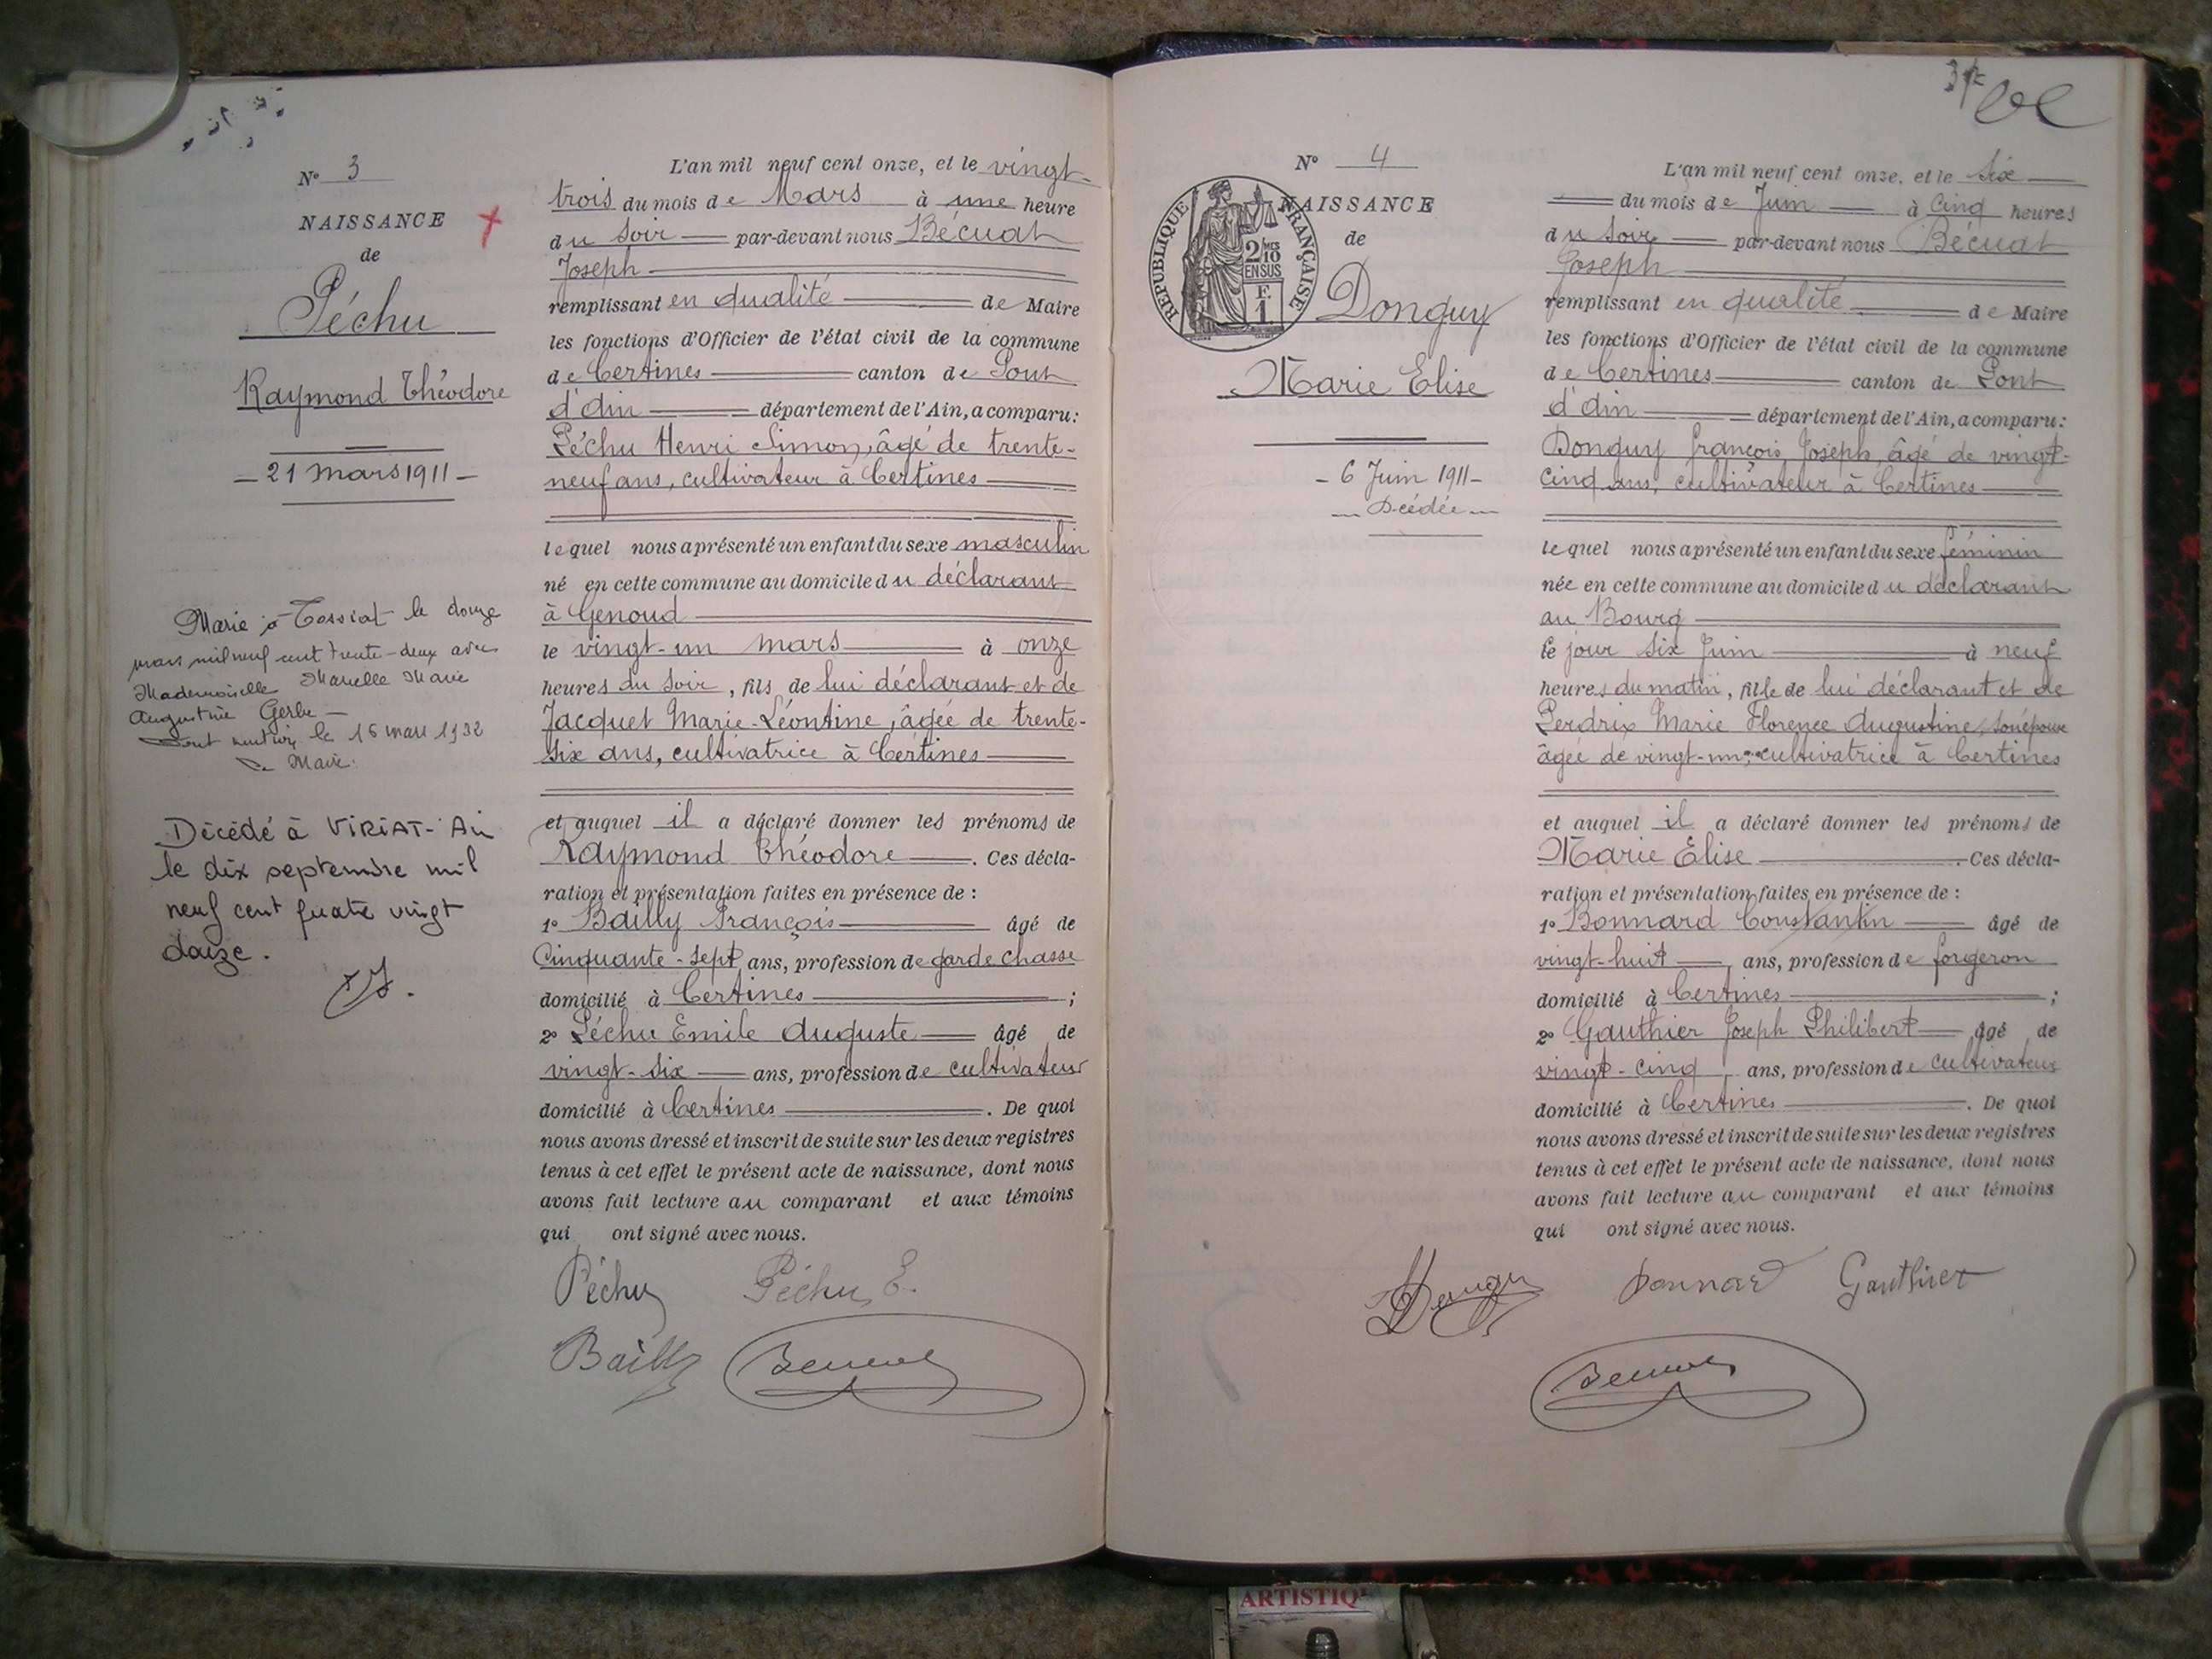 N° 3
NAISSANCE
de
Péchu
Raymond Théodore
- 21 mars 1911 -
Marié à Tossiat le douze
mars mil neuf cent trente-deux avec
Mademoiselle Marcelle Marie
Augustine Gerbe
Dont mention le 16 mars 1932
Le Maire.
Décédé à VIRIAT - Ain
le dix septembre mil
neuf cent quatre vingt
douze.
L'an mil neuf cent onze, et le vingt-
trois du mois de Mars à une heure
du soir par-devant nous Bécuat
Joseph
remplissant en qualité de Maire
les fonctions d'Officier de l'état civil de la commune
de Certines canton de Pont
d'Ain département de l'Ain, a comparu:
Péchu Henri Simon, âgé de trente-
neuf ans, cultivateur à Certines
lequel nous a présenté un enfant du sexe masculin
né en cette commune au domicile du déclarant
à Genoud
le vingt-un mars à onze
heures du soir, fils de lui déclarant et de
Jacquet Marie-Léontine, âgée de trente-
six ans, cultivatrice à Certines
et auquel il a déclaré donner les prénoms de
Raymond Théodore. Ces décla-
ration et présentation faites en présence de :
1° Bailly François âgé de
Cinquante-sept ans, profession de garde chasse
domicilié à Certines ;
2° Péchu Emile Auguste âgé de
vingt-six ans, profession de cultivateur
domicilié à Certines. De quoi
nous avons dressé et inscrit de suite sur les deux registres
tenus à cet effet le présent acte de naissance, dont nous
avons fait lecture au comparant et aux témoins
qui ont signé avec nous.
Péchu Péchu E.
Bailly Bécuat
N° 4
NAISSANCE
de
RÉPUBLIQUE FRANÇAISE
2/10
EN SUS
F.
1
Donguy
Marie Elise
- 6 Juin 1911 -
- Décédée -
L'an mil neuf cent onze, et le six
du mois de Juin à cinq heures
du soir par-devant nous Bécuat
Joseph
remplissant en qualité de Maire
les fonctions d'Officier de l'état civil de la commune
de Certines canton de Pont
d'Ain département de l'Ain, a comparu:
Donguy François Joseph, âgé de vingt-
cinq ans, cultivateur à Certines
lequel nous a présenté un enfant du sexe féminin
née en cette commune au domicile du déclarant
au Bourg
le jour six Juin à neuf
heures du matin, fille de lui déclarant et de
Perdrix Marie Florence Augustine, son épouse
âgée de vingt-un cultivatrice à Certines
et auquel il a déclaré donner les prénoms de
Marie Elise. Ces décla-
ration et présentation faites en présence de :
1° Bonnard Constantin âgé de
vingt-huit, ans, profession de forgeron
domicilié à Certines ;
2° Gauthier Joseph Philibert âgé de
vingt-cinq, ans, profession de cultivateur
domicilié à Certines. De quoi
nous avons dressé et inscrit de suite sur les deux registres
tenus à cet effet le présent acte de naissance, dont nous
avons fait lecture au comparant et aux témoins
qui ont signé avec nous.
Donguy Bonnard Gauthier
Bécuat
ARTISTIQ